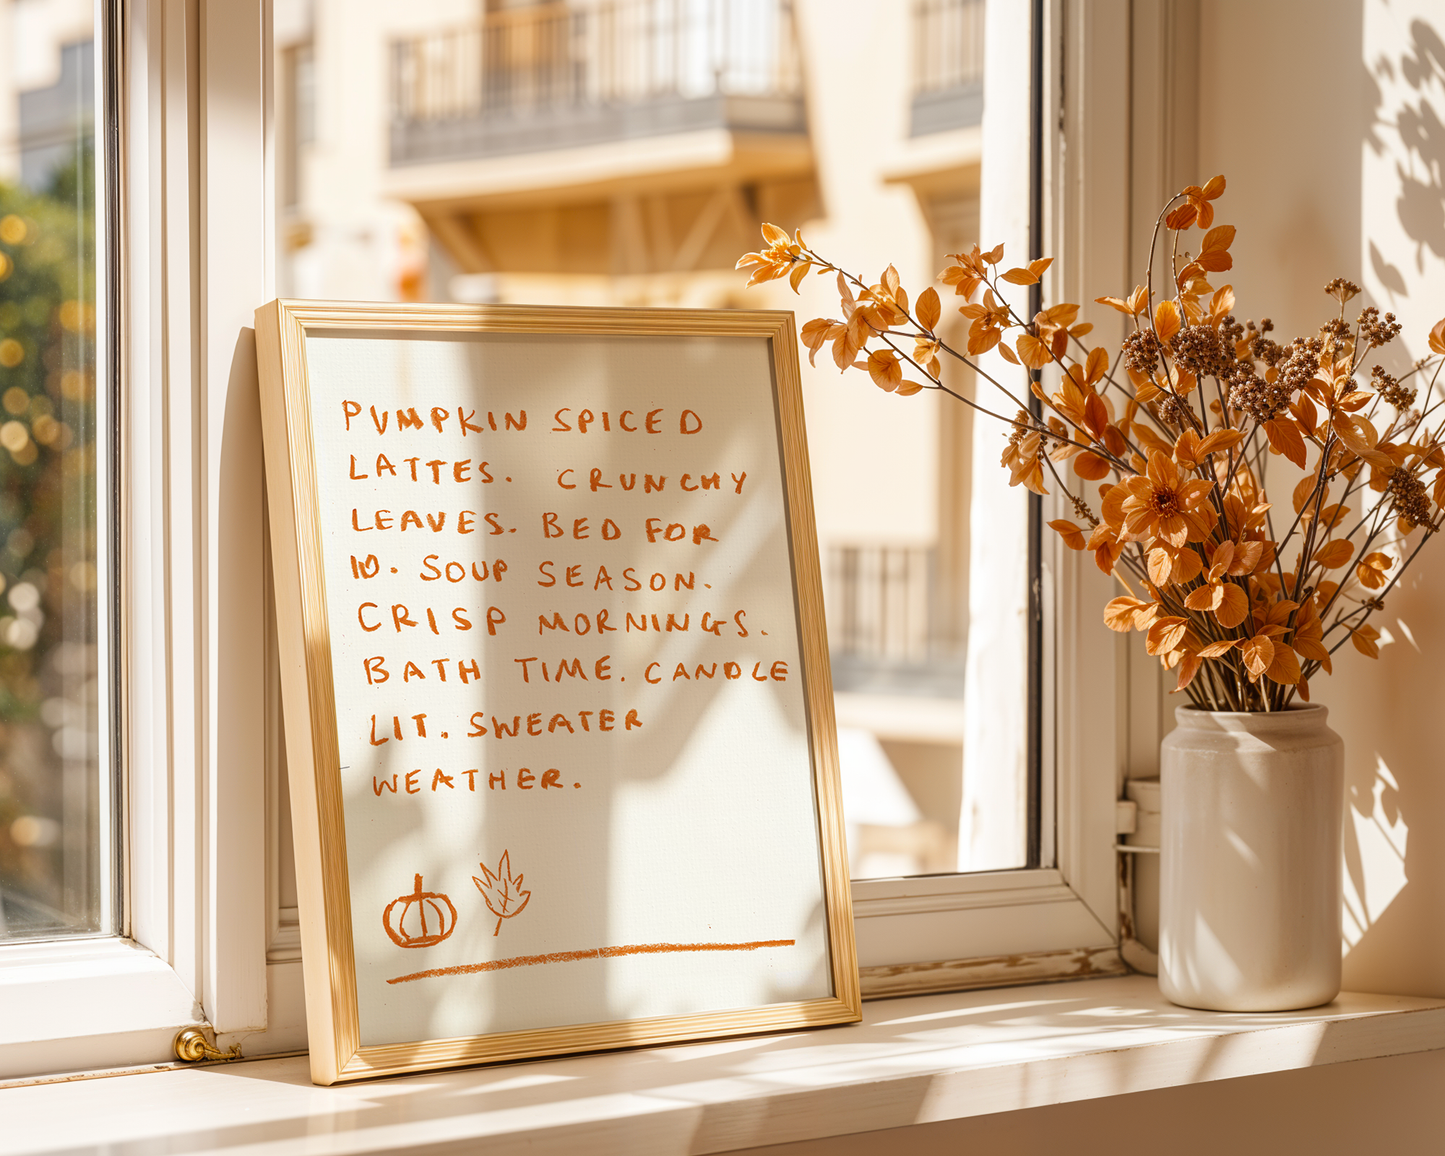 PUMPKIN SPICED
LATTES. CRUNCHY
LEAVES. BED FOR
10. SOUP SEASON.
CRISP MORNINGS.
BATH TIME. CANDLE
LIT. SWEATER
WEATHER.